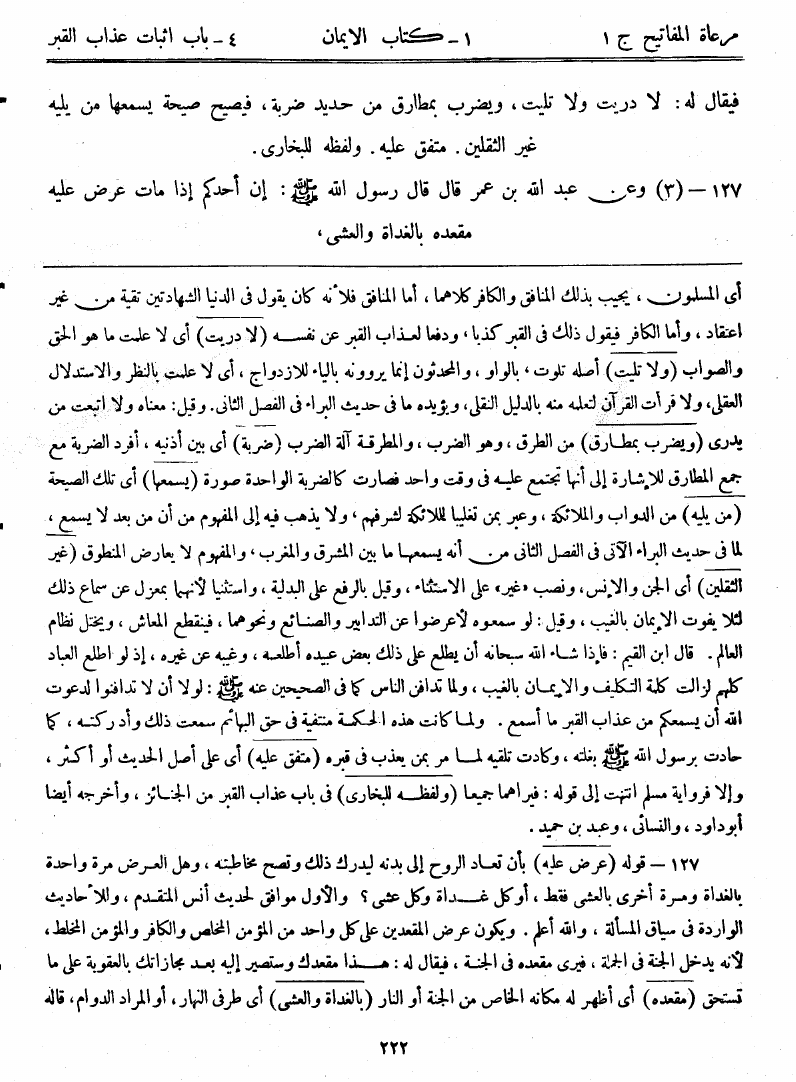 مرعاة المفاتيح ج ١ ١ - كتاب الايمان ٤ - باب اثبات عذاب القبر
فيقال له: لا دريت ولا تليت، ويضرب بمطارق من حديد ضربة، فيصيح صيحة يسمعها من يليه
غير الثقلين. متفق عليه. ولفظه للبخارى.
١٢٧ – (٣) وعن عبد الله بن عمر قال قال رسول الله ﷺ: إن أحدكم إذا مات عرض عليه
مقعده بالغداة والعشى،
أى المسلمون، يجيب بذلك المنافق والكافر كلاهما، أما المنافق فلأنه كان يقول فى الدنيا الشهادتين تقية من غير
اعتقاد، وأما الكافر فيقول ذلك فى القبر كذبا، ودفعا لعذاب القبر عن نفسه (لا دريت) أى لا علمت ما هو الحق
والصواب (ولا تليت) أصله تلوت، بالواو، والمحدثون إنما يروونه بالياء للازدواج، أى لا علمت بالنظر والاستدلال
العقلى، ولا قرأت القرآن لتعلمه منه بالدليل النقلى، ويؤيده ما فى حديث البراء فى الفصل الثانى. وقيل: معناه ولا اتبعت من
يدرى (ويضرب بمطارق) من الطرق، وهو الضرب، والمطرقة آلة الضرب (ضربة) أى بين أذنيه، أفرد الضربة مع
جمع المطارق للإشارة إلى أنها تجتمع عليه فى وقت واحد فصارت كالضربة الواحدة صورة (يسمعها) أى تلك الصيحة
(من يليه) من الدواب والملائكة، وعبر بمن تغليبا للملائكة لشرفهم، ولا يذهب فيه إلى المفهوم من أن من بعد لا يسمع،
لما فى حديث البراء الآتى فى الفصل الثانى من أنه يسمعها ما بين المشرق والمغرب، والمفهوم لا يعارض المنطوق (غير
الثقلين) أى الجن والإنس، ونصب «غير» على الاستثناء، وقيل بالرفع على البدلية، واستثنيا لأنهما بمعزل عن سماع ذلك
لئلا يفوت الإيمان بالغيب، وقيل: لو سمعوه لأعرضوا عن التدابير والصنائع ونحوهما، فينقطع المعاش، ويختل نظام
العالم. قال ابن القيم: فإذا شاء الله سبحانه أن يطلع على ذلك بعض عبيده أطلعه، وغيبه عن غيره، إذ لو اطلع العباد
كلهم لزالت كلمة التكليف والإيمان بالغيب، ولما تدافن الناس كما فى الصحيحين عنه ﷺ: لولا أن لا تدافنوا لدعوت
الله أن يسمعكم من عذاب القبر ما أسمع. ولما كانت هذه الحكمة منتفية فى حق البهائم سمعت ذلك وأدركته، كما
حادت برسول الله ﷺ بغلته، وكادت تلقيه لما مر بمن يعذب فى قبره (متفق عليه) أى على أصل الحديث أو أكثر،
وإلا فرواية مسلم انتهت إلى قوله: فيراهما جميعا (ولفظه للبخارى) فى باب عذاب القبر من الجنائز، وأخرجه أيضا
أبوداود، والنسائى، وعبد بن حميد.
١٢٧ – قوله (عرض عليه) بأن تعاد الروح إلى بدنه ليدرك ذلك وتصح مخاطبته، وهل العرض مرة واحدة
بالغداة ومرة أخرى بالعشى فقط، أو كل غداة وكل عشى؟ والأول موافق لحديث أنس المتقدم، وللأحاديث
الواردة فى سياق المسألة، والله أعلم. ويكون عرض المقعدين على كل واحد من المؤمن المخلص والكافر والمؤمن المخلط،
لأنه يدخل الجنة فى الجملة، فيرى مقعده فى الجنة، فيقال له: هذا مقعدك وستصير إليه بعد مجازاتك بالعقوبة على ما
تستحق (مقعده) أى أظهر له مكانه الخاص من الجنة أو النار (بالغداة والعشى) أى طرفى النهار، أو المراد الدوام، قاله
٢٢٢